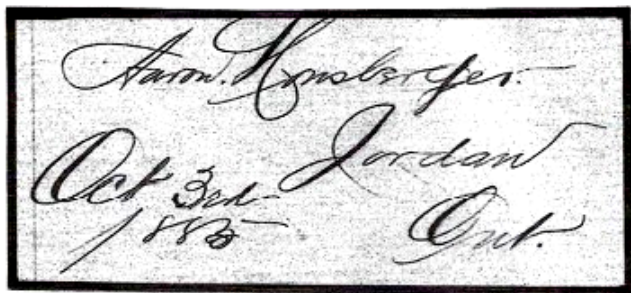 Aaron. Hunsberger.
Jordan
Oct 3rd
Ont.
1885